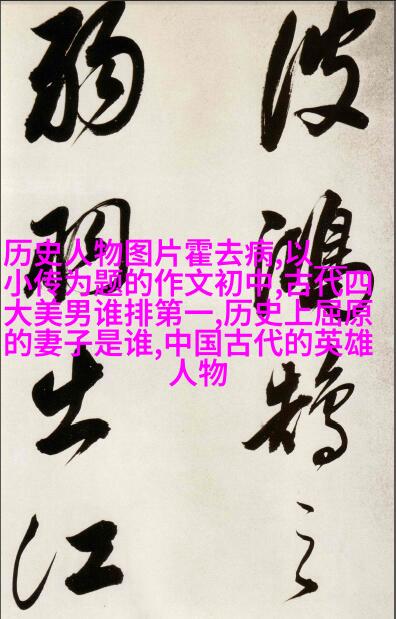 波鴻鵠之
弱羽出江
历史人物图片霍去病,以
小传为题的作文初中,古代四
大美男谁排第一,历史上屈原
的妻子是谁,中国古代的英雄
人物